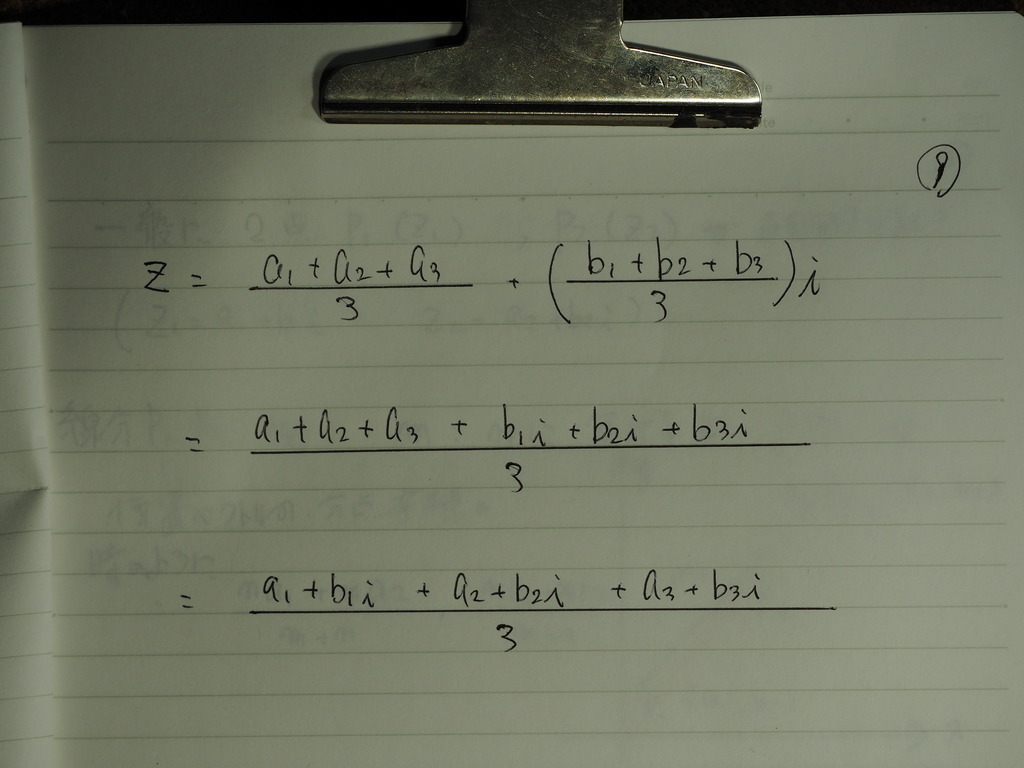 JAPAN
⑨
z = \frac{a_1 + a_2 + a_3}{3} + \left( \frac{b_1 + b_2 + b_3}{3} \right) i
= \frac{a_1 + a_2 + a_3 + b_1 i + b_2 i + b_3 i}{3}
= \frac{a_1 + b_1 i + a_2 + b_2 i + a_3 + b_3 i}{3}